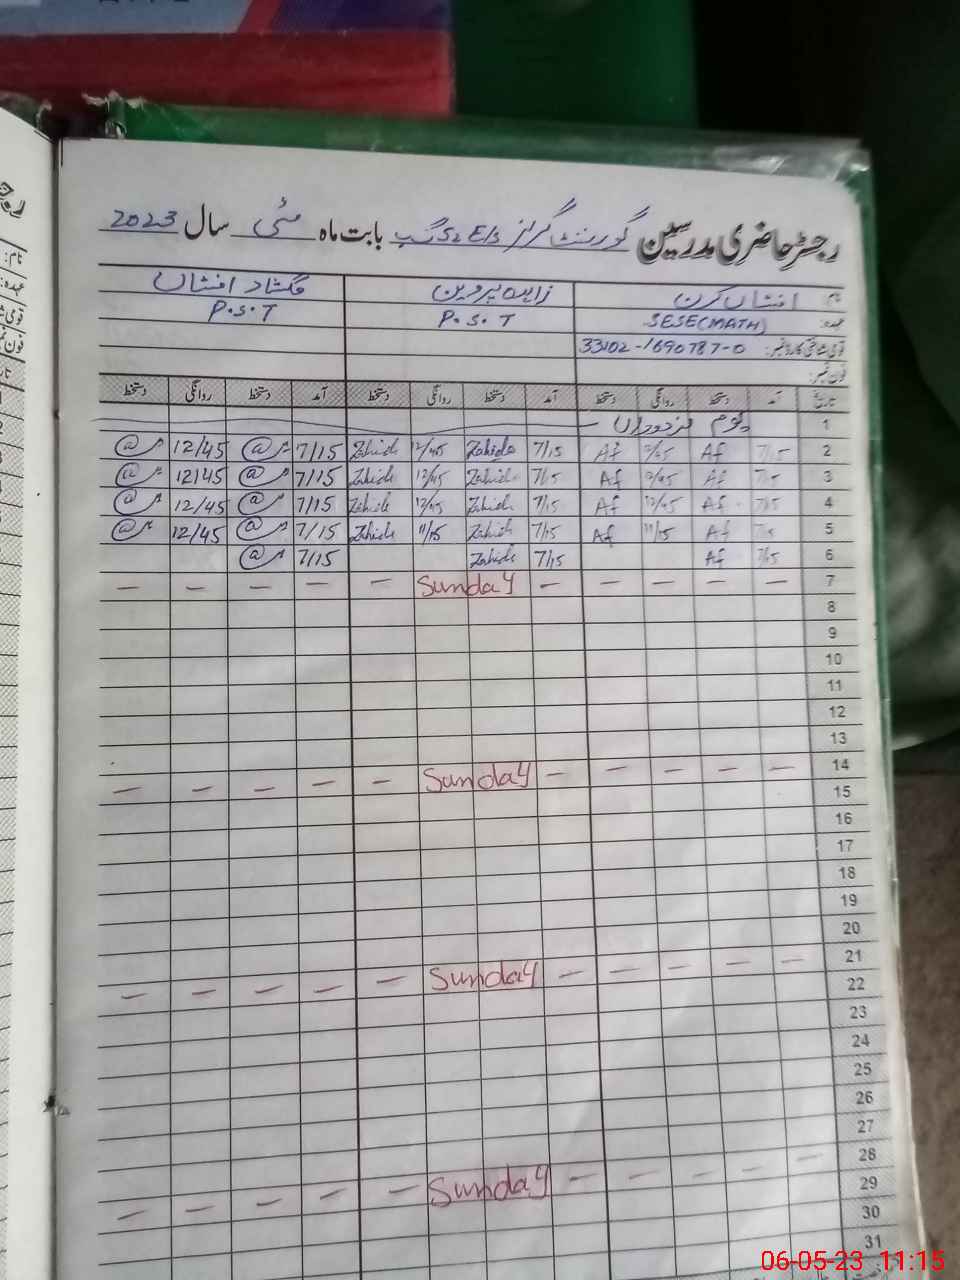 رجسٹر حاضری مدرسین گورنمنٹ گرلز E/S گ ب بابت ماہ مئی سال 2023
نام افشاں کرن زاہدہ پروین گلشاد افشاں
عہدہ: SESE(MATH) P.S.T P.S.T
قومی شناختی کارڈ نمبر: 33102-1690787-0
فون نمبر:
تاریخ آمد دستخط روانگی دستخط آمد دستخط روانگی دستخط آمد دستخط روانگی دستخط
1 یوم مزدوراں
2 7/15 Af Af 7/15 Zahida 12/45 Zahida 7/15 @ 12/45 @
3 7/15 Af Af 7/15 Zahida 12/45 Zahida 7/15 @ 12/45 @
4 7/15 Af 12/45 Af 7/15 Zahida 12/45 Zahida 7/15 @ 12/45 @
5 7/15 Af 11/15 Af 7/15 Zahida 11/15 Zahida 7/15 @ 12/45 @
6 7/15 Af 7/15 Zahida 7/15 @
7 – – – – – Sunday – – – – –
8
9
10
11
12
13
14 – – – – – Sunday – – – – –
15
16
17
18
19
20
21 – – – – – Sunday – – – – –
22
23
24
25
26
27
28 – – – – – Sunday – – – – –
29
30
31
06-05-23 11:15